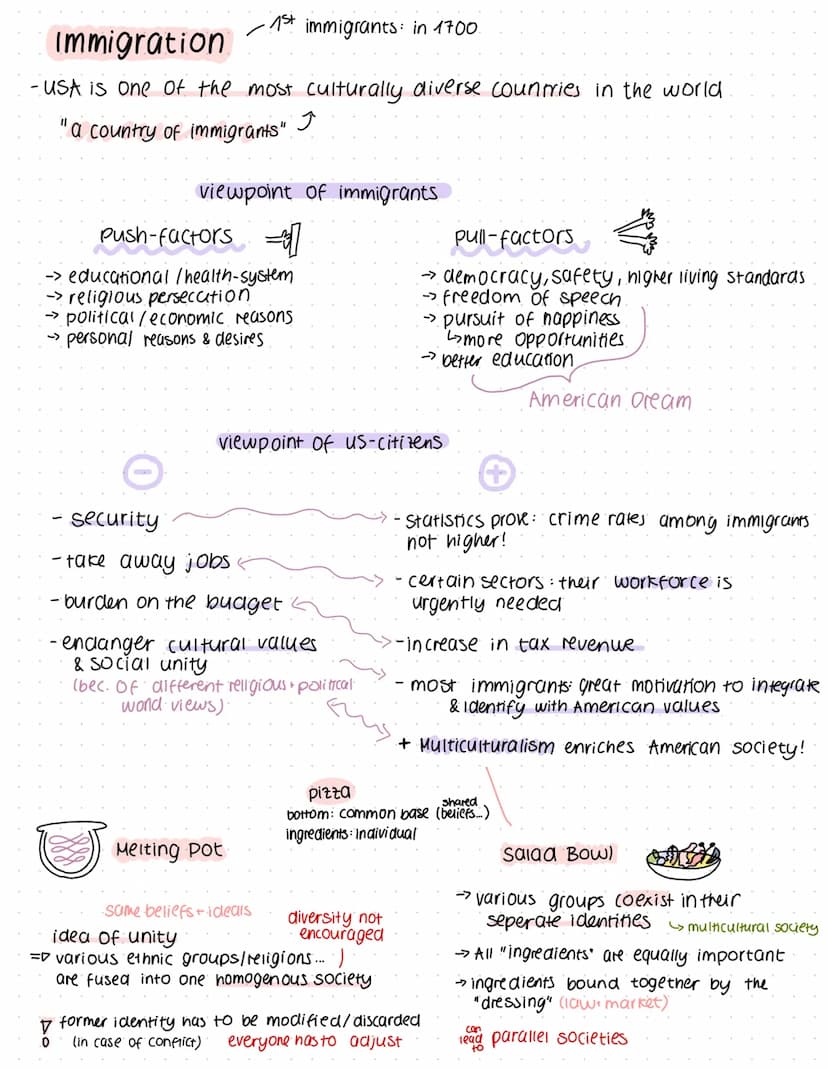 Immigration
1st immigrants: in 1700
- USA is one of the most culturally diverse countries in the world
"a country of immigrants"
viewpoint of immigrants
push-factors
-> educational/health-system
-> religious persecution
-> political/economic reasons
-> personal reasons & desires
pull-factors
-> democracy, safety, higher living standards
-> freedom of speech
-> pursuit of happiness
↳ more opportunities
-> better education
American Dream
viewpoint of US-citizens
-
- security
- take away jobs
- burden on the budget
- endanger cultural values
& social unity
(bec. of different religious + political
world views)
+
- statistics prove: crime rates among immigrants
not higher!
- certain sectors: their workforce is
urgently needed
- increase in tax revenue
- most immigrants: great motivation to integrate
& identify with American values
+ Multiculturalism enriches American society!
pizza
bottom: common base (shared beliefs...)
ingredients: individual
Melting Pot
same beliefs + ideals
diversity not
encouraged
idea of unity
=> various ethnic groups/religions...
are fused into one homogenous society
! former identity has to be modified/discarded
(in case of conflict) everyone has to adjust
Salad Bowl
-> various groups coexist in their
seperate identities ↳ multicultural society
-> All "ingredients" are equally important
-> ingredients bound together by the
"dressing" (law + market)
can lead to parallel societies